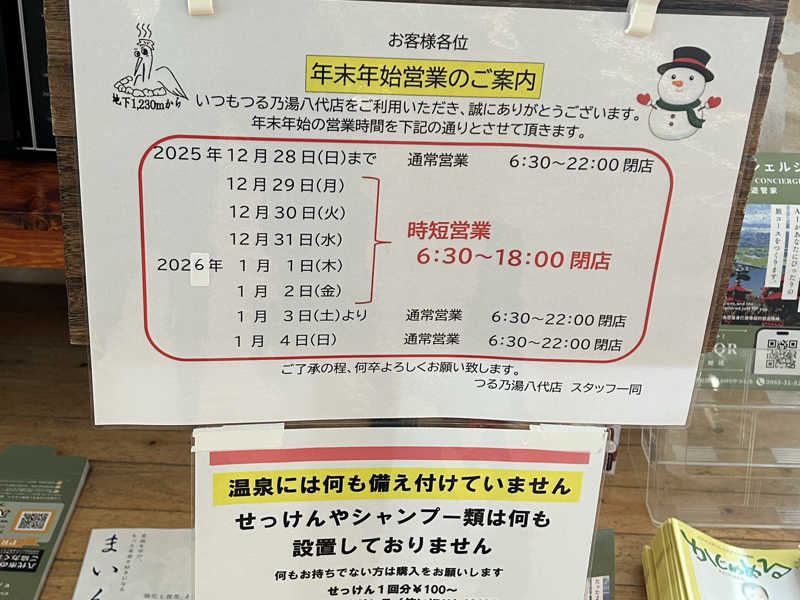 お客様各位
年末年始営業のご案内
地下1,230mから
いつもつる乃湯八代店をご利用いただき、誠にありがとうございます。
年末年始の営業時間を下記の通りとさせて頂きます。
2025年12月28日(日)まで 通常営業 6:30～22:00閉店
12月29日(月)
12月30日(火)
12月31日(水)
2026年 1月 1日(木)
1月 2日(金)
時短営業
6:30～18:00閉店
1月 3日(土)より 通常営業 6:30～22:00閉店
1月 4日(日) 通常営業 6:30～22:00閉店
ご了承の程、何卒よろしくお願い致します。
つる乃湯八代店 スタッフ一同
温泉には何も備え付けていません
せっけんやシャンプー類は何も
設置しておりません
何もお持ちでない方は購入をお願いします
せっけん1回分¥100～
シェルジ
CONCIERGE
AIがあなたにぴったりの
旅コースをつくります。
QR
まいん